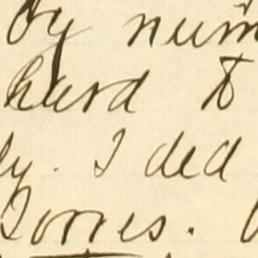 by num
hard to
ly. I ded
Torres.